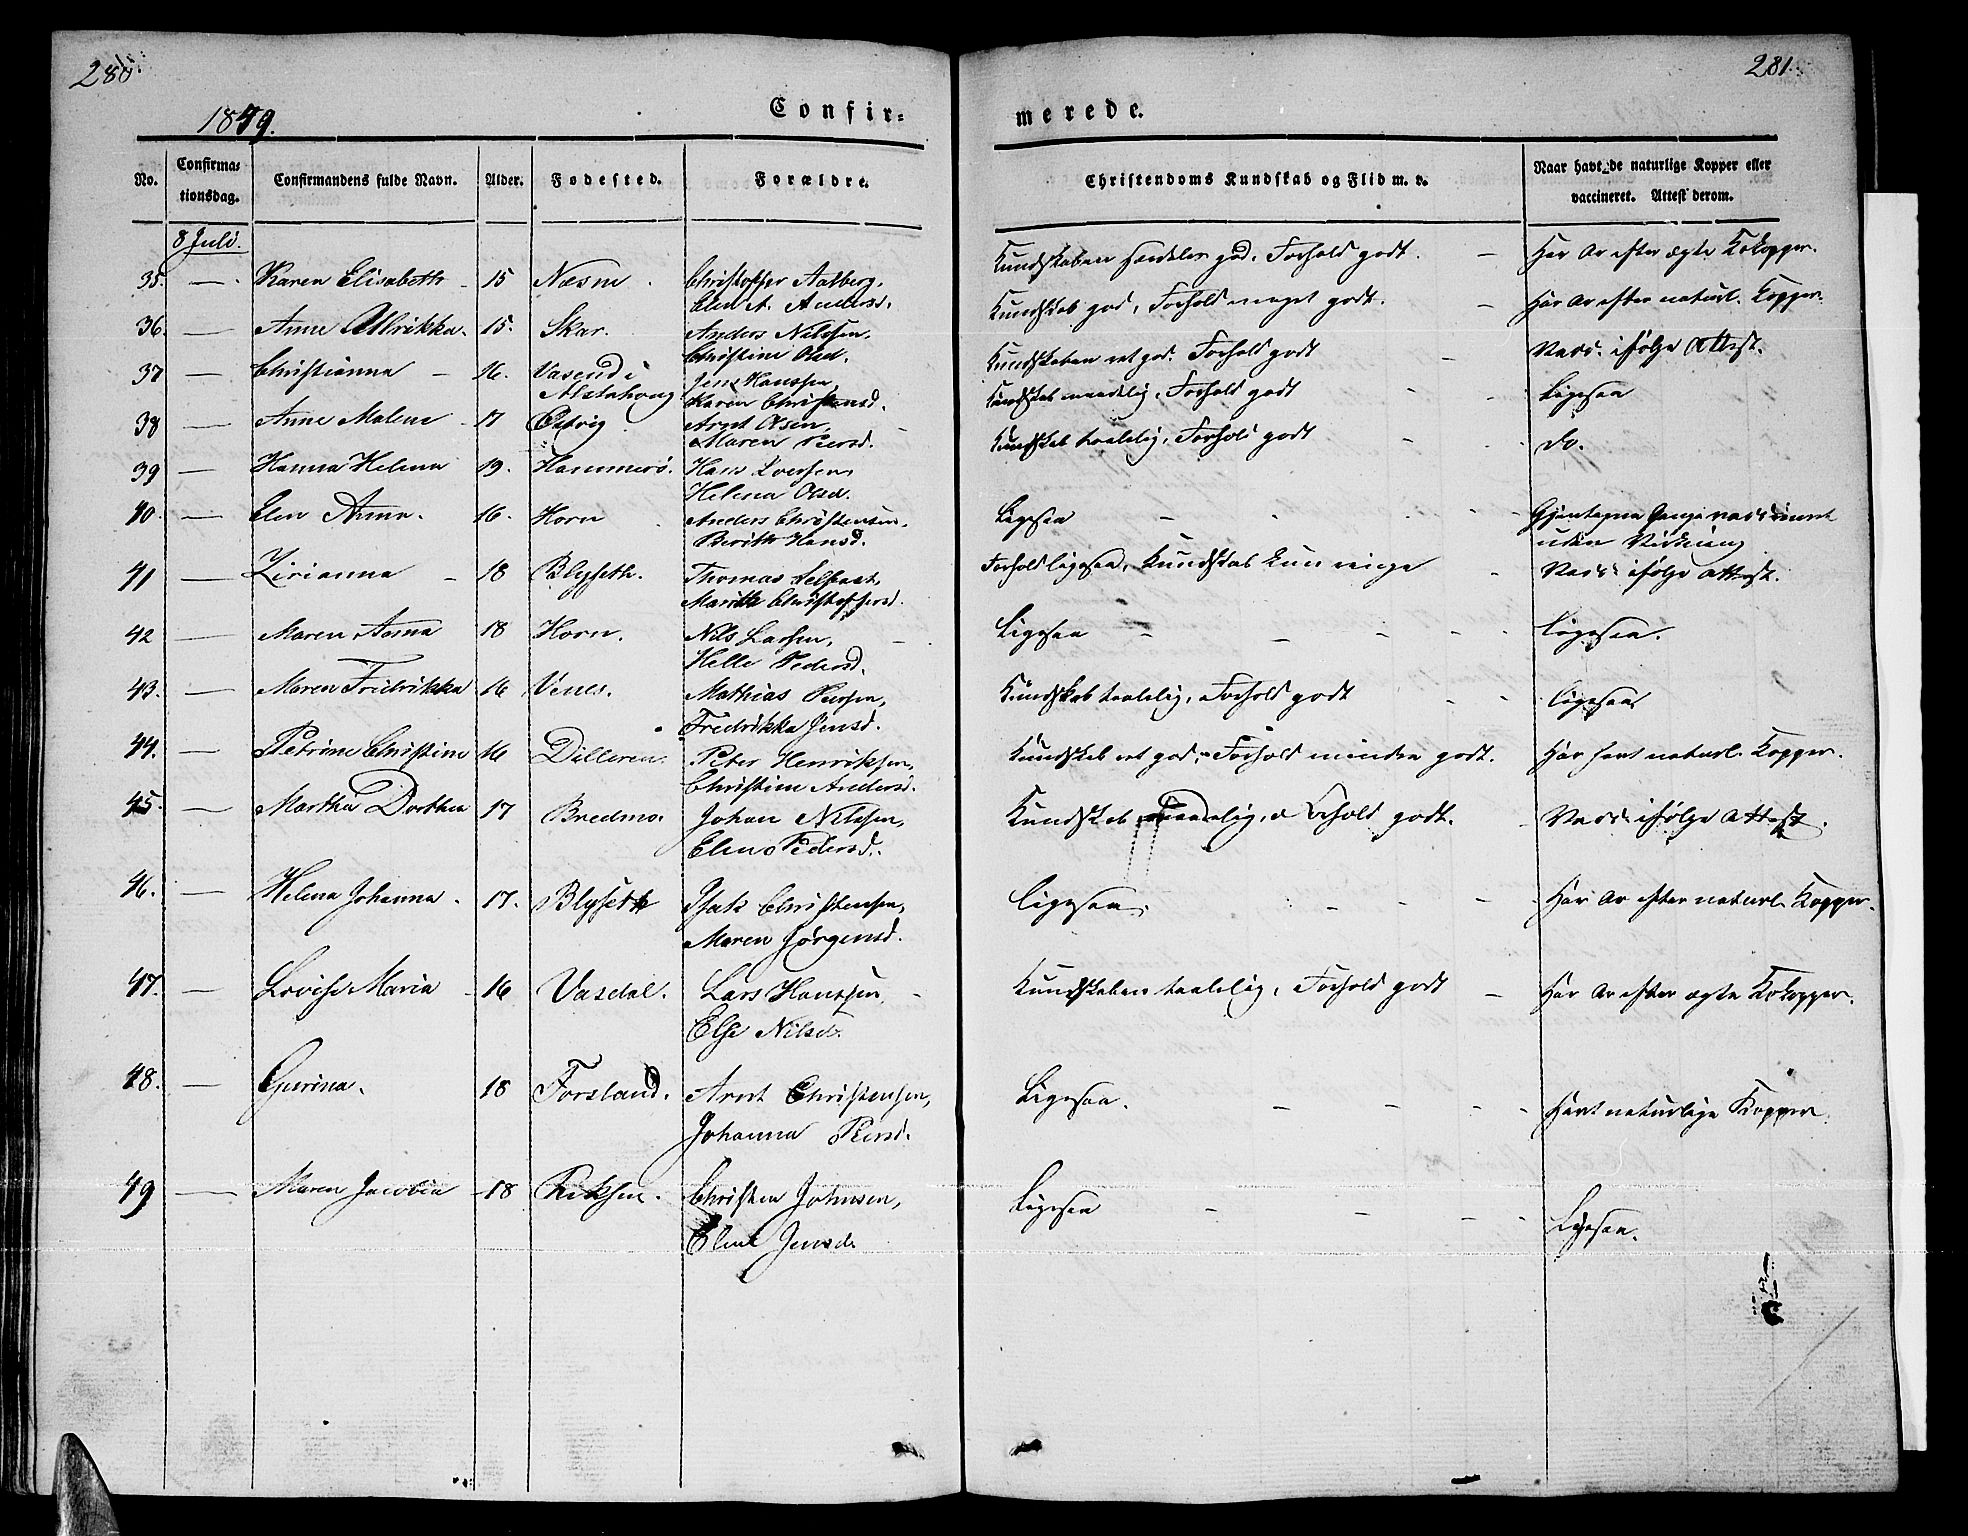 280.
281.
1849.
Confir=
merede.
No.
Confirma=
tionsdag.
Confirmandens fulde Navn.
Alder.
Fødested.
Forældre.
Christendoms Kundskab og Flid m. v.
Naar havt de naturlige Kopper eller
vaccineret. Attest derom.
8 Juli.
35. — Karen Elisabeth 15 Næsne Christoffer Aalberg, Kundskaben særdeles god, Forhold godt. Har Ar efter ægte Kokopper.
Elen A. Andersd.
36. — Anne Ulrikka. 15. Skar. Anders Nilssen, Kundskab god, Forhold meget godt. Har Ar efter naturl. Kopper.
Christine Olsd.
37 — Christianna 16. Vasend i Jens Hanssen, Kundskaben ret god. Forhold godt Vacc. ifølge Attest.
Alstahoug Karen Christensd.
38 — Anne Malene 17 Østvig Arnt Olsen, Kundskab maadelig, Forhold godt Ligesaa
Maren Peersd.
39 — Hanna Helena 19. Hammerø. Hans Iversen, Kundskab taalelig, Forhold godt do.
Helena Olsd.
40. — Elen Anna. 16. Horn Anders Christensen, Ligesaa Gjentagne Gange vaccineret
Berith Hansd. uden Virkning
41 — Zirianna 18 Blyseth. Thomas Forhold ligesaa, Kundskab kun ringe Vacc. ifølge Attest.
Marith Christoffersd.
42 — Maren Anna 18 Horn. Nils Larsen, Ligesaa Ligesaa.
Helle Pedersd.
43. — Maren Fredrikka 16 Venes. Mathias Peersen, Kundskab taalelig, Forhold godt Ligesaa
Fredrikka Jensd.
44. — Petrine Christine 16 Dilleren Peter Henriksen, Kundskab ret god, Forhold mindre godt. Har havt naturl. Kopper.
Christine Andersd.
45. — Martha Dorthea 17 Bredmo. Johan Nilssen, Kundskab maadelig, Forhold godt. Vacc. ifølge Attest.
Elen Pedersd.
46. — Helena Johanna. 17. Blyseth Isak Christensen, Ligesaa, Har Ar efter naturl. Kopper.
Maren Jørgensd.
47. — Lovise Maria 16 Vasdal. Lars Hanssen Kundskaben taalelig, Forhold godt Har Ar efter ægte Kokopper.
Else Nilsd.
48. — Gurina. 18 Forsland. Arnt Christensen, Ligesaa. Havt naturlige Kopper.
Johanna Peersd.
49 — Maren Jacobia 18 Christen Johnsen, Ligesaa Ligesaa.
Elen Jensd.